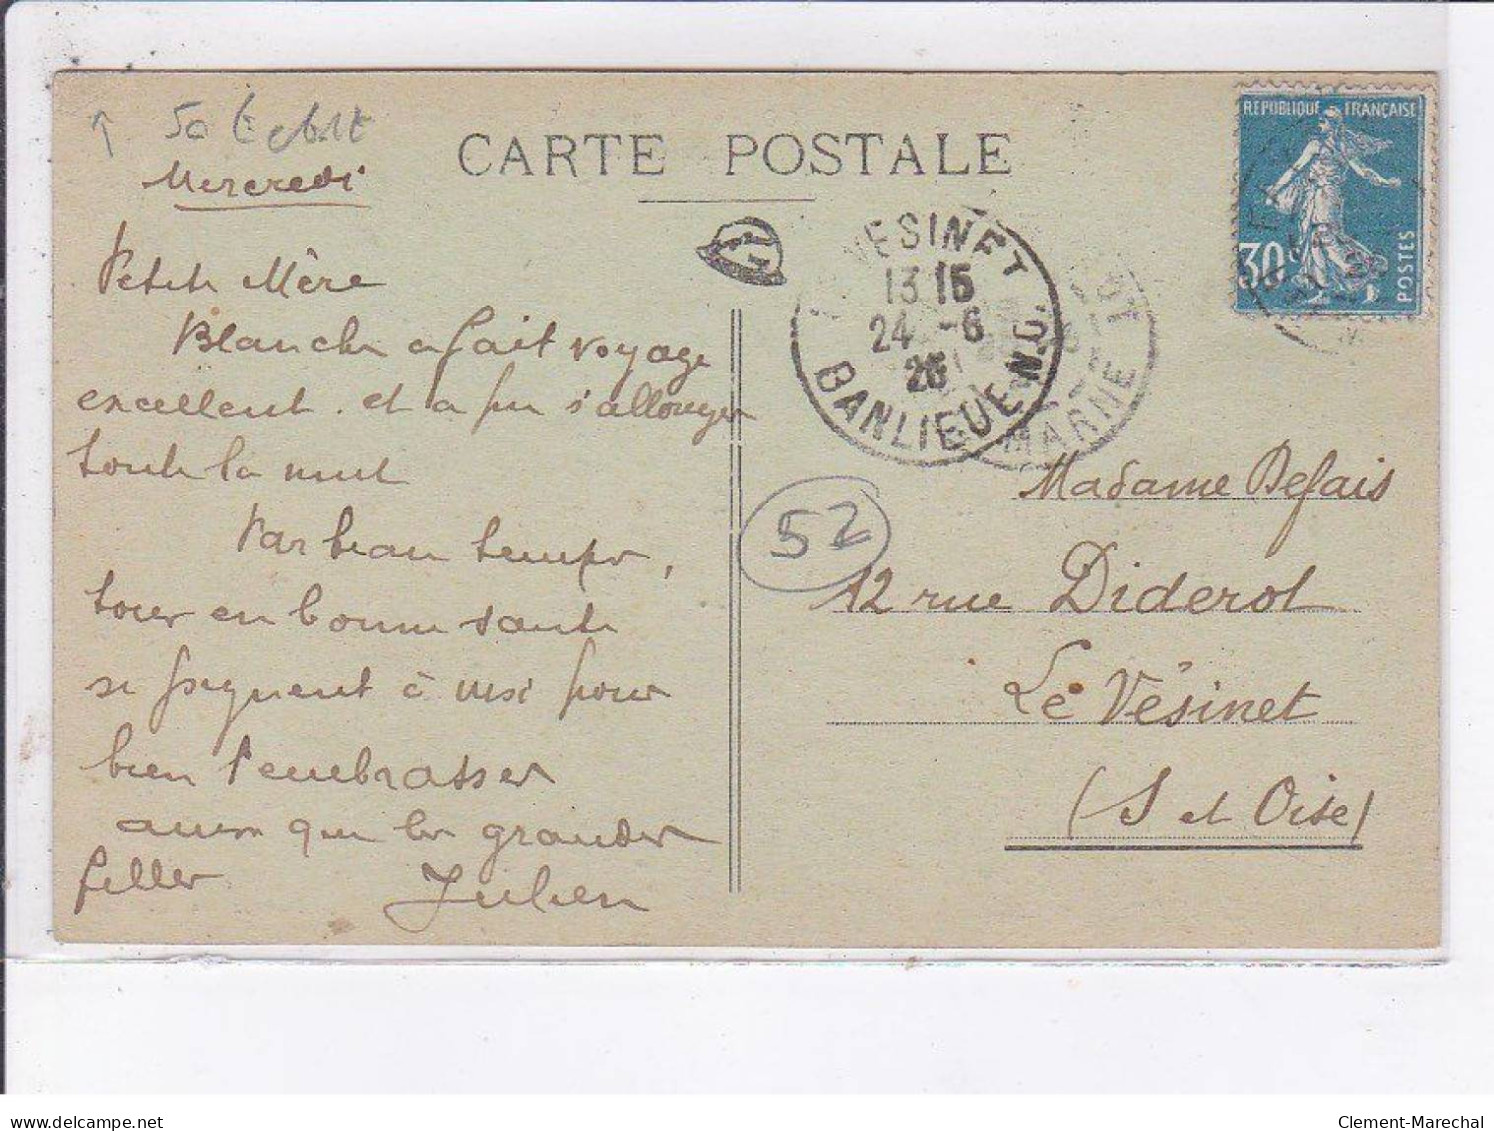 CARTE POSTALE
Mercredi
Petite Mère
Blanche a fait voyage
excellent. et a pu s'allonger
toute la nuit
Par beau temps,
tous en bonne santé
se joignent à moi pour
bien t'embrasser
aussi que les grandes
filles
Julien
RÉPUBLIQUE FRANÇAISE
30c
POSTES
VESINET
13 15
24 -6
26
BANLIEUE N.O.
MARNE
52
Madame Defais
12 rue Diderot
Le Vésinet
(S et Oise)
delcampe.net
Clement-Marechal